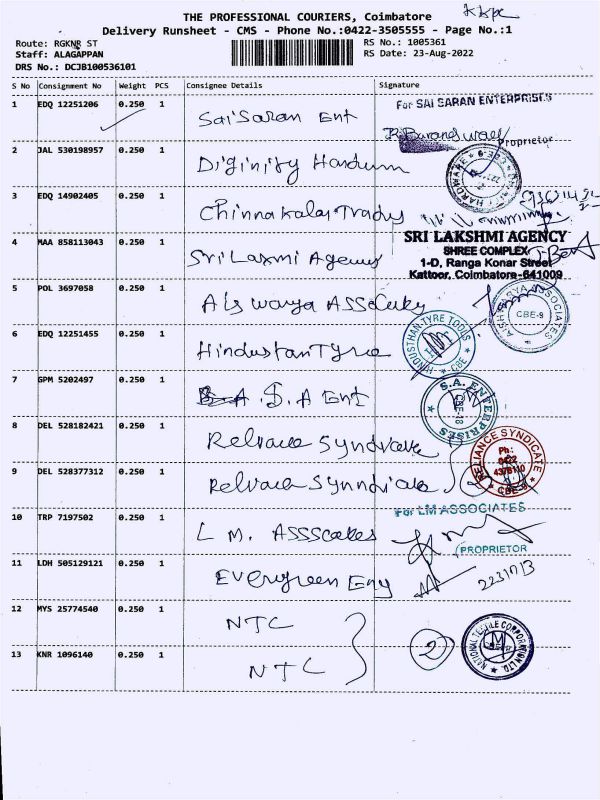 KKpc
THE PROFESSIONAL COURIERS, Coimbatore
Delivery Runsheet - CMS - Phone No.:0422-3505555 - Page No.:1
Route: RGKNR ST
RS No.: 1005361
Staff: ALAGAPPAN
RS Date: 23-Aug-2022
DRS No.: DCJB100536101
S No Consignment No Weight PCS Consignee Details Signature
1 EDQ 12251206 0.250 1 Sai Saran Ent For SAI SARAN ENTERPRISES
Proprietor
2 JAL 530198957 0.250 1 Diginity Hardum HARDWARE
3 EDQ 14902405 0.250 1 Chinnakalai Tradys
4 MAA 858113043 0.250 1 Sri Laxmi Agency SRI LAKSHMI AGENCY
SHREE COMPLEX
1-D, Ranga Konar Street
Kattoor, Coimbatore-641009
5 POL 3697058 0.250 1 AISHWARYA ASSOCIATES CBE-9
6 EDQ 12251455 0.250 1 Hindustan Tyre HINDUSTHAN TYRE TOOLS CBE
7 GPM 5202497 0.250 1 S.A Ent S.A. ENTERPRISES CBE-18
8 DEL 528182421 0.250 1 Reliance Syndicate RELIANCE SYNDICATE
Ph:
0422
4376110
CBE-9
9 DEL 528377312 0.250 1
10 TRP 7197502 0.250 1 L M. ASSScates For LM ASSOCIATES
PROPRIETOR
11 LDH 505129121 0.250 1 Evergreen Eng
12 MYS 25774540 0.250 1 NTC
2 NATIONAL TEXTILE CORPORATION LTD.
13 KNR 1096140 0.250 1 NTC